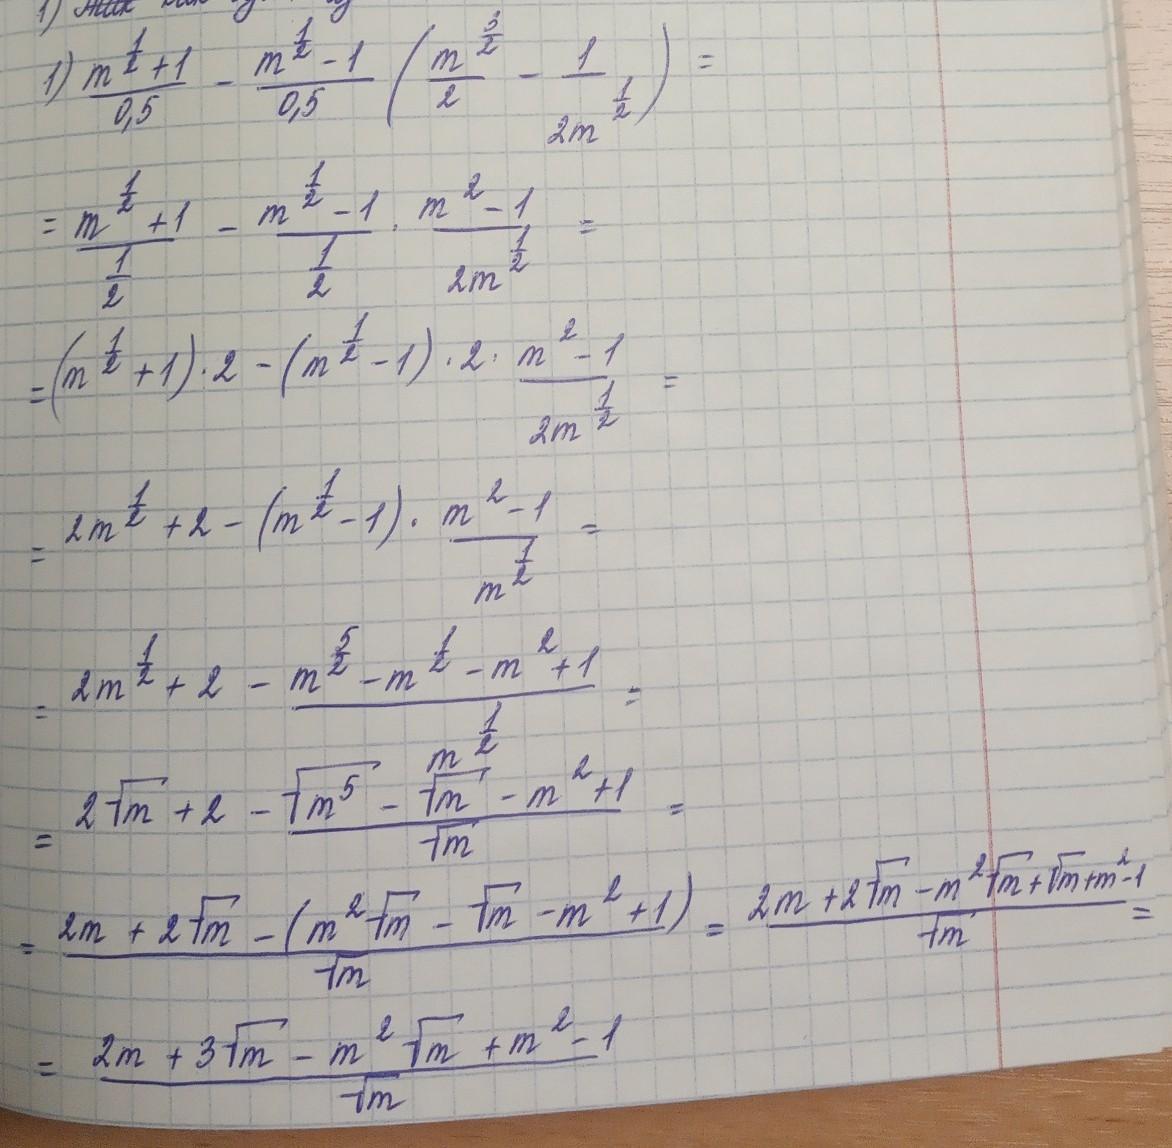 1) \frac{m^{\frac{1}{2}}+1}{0,5} - \frac{m^{\frac{1}{2}}-1}{0,5} \left( \frac{m^{\frac{3}{2}}}{2} - \frac{1}{2m^{\frac{1}{2}}} \right) =
= \frac{m^{\frac{1}{2}}+1}{\frac{1}{2}} - \frac{m^{\frac{1}{2}}-1}{\frac{1}{2}} \cdot \frac{m^2-1}{2m^{\frac{1}{2}}} =
= (m^{\frac{1}{2}}+1) \cdot 2 - (m^{\frac{1}{2}}-1) \cdot 2 \cdot \frac{m^2-1}{2m^{\frac{1}{2}}} =
= 2m^{\frac{1}{2}}+2-(m^{\frac{1}{2}}-1) \cdot \frac{m^2-1}{m^{\frac{1}{2}}} =
= 2m^{\frac{1}{2}}+2-\frac{m^{\frac{5}{2}}-m^{\frac{1}{2}}-m^2+1}{m^{\frac{1}{2}}} =
= 2\sqrt{m}+2-\frac{\sqrt{m^5}-\sqrt{m}-m^2+1}{\sqrt{m}} =
= \frac{2m+2\sqrt{m}-(m^2\sqrt{m}-\sqrt{m}-m^2+1)}{\sqrt{m}} = \frac{2m+2\sqrt{m}-m^2\sqrt{m}+\sqrt{m}+m^2-1}{\sqrt{m}} =
= \frac{2m+3\sqrt{m}-m^2\sqrt{m}+m^2-1}{\sqrt{m}}